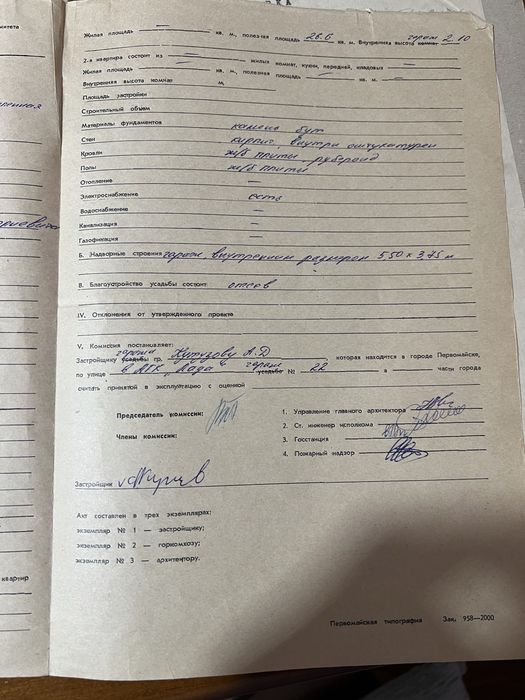 Жилая площадь — кв. м., полезная площадь 26.6 кв. м. Внутренняя высота комнат гараж 2.10
2-а квартира состоит из — жилых комнат, кухни, передней, кладовых —
Жилая площадь — кв. м., полезная площадь — кв. м. —
Внутренняя высота комнат м,
Площадь застройки
Строительный объем
Материалы фундаментов камень бут
Стен кирпич, внутри оштукатурен
Кровли ж/б плиты рубероид
Полы ж/б плиты
Отопление —
Электроснабжение есть
Водоснабжение —
Канализация —
Газофикация —
Б. Надворные строения гараж, внутренним размером 5,50 х 3,75 м
В. Благоустройство усадьбы состоит отсев
IV. Отклонения от утвержденного проекта
V. Комиссия постановляет:
гаража
Застройщику усадьбы гр. Кутузову А.Д которая находится в городе Первомайске,
по улице в АГК „Лада" гараж усадьбе № 22 в — части города
считать принятой в эксплуатацию с оценкой
Председатель комиссии:
Члены комиссии:
1. Управление главного архитектора
2. Ст. инженер исполкома
3. Госстанция
4. Пожарный надзор
Застройщик
Акт составлен в трех экземплярах:
экземпляр № 1 — застройщику;
экземпляр № 2 — горкомхозу;
экземпляр № 3 — архитектору.
Первомайская типография Зак. 958—2000
квартир